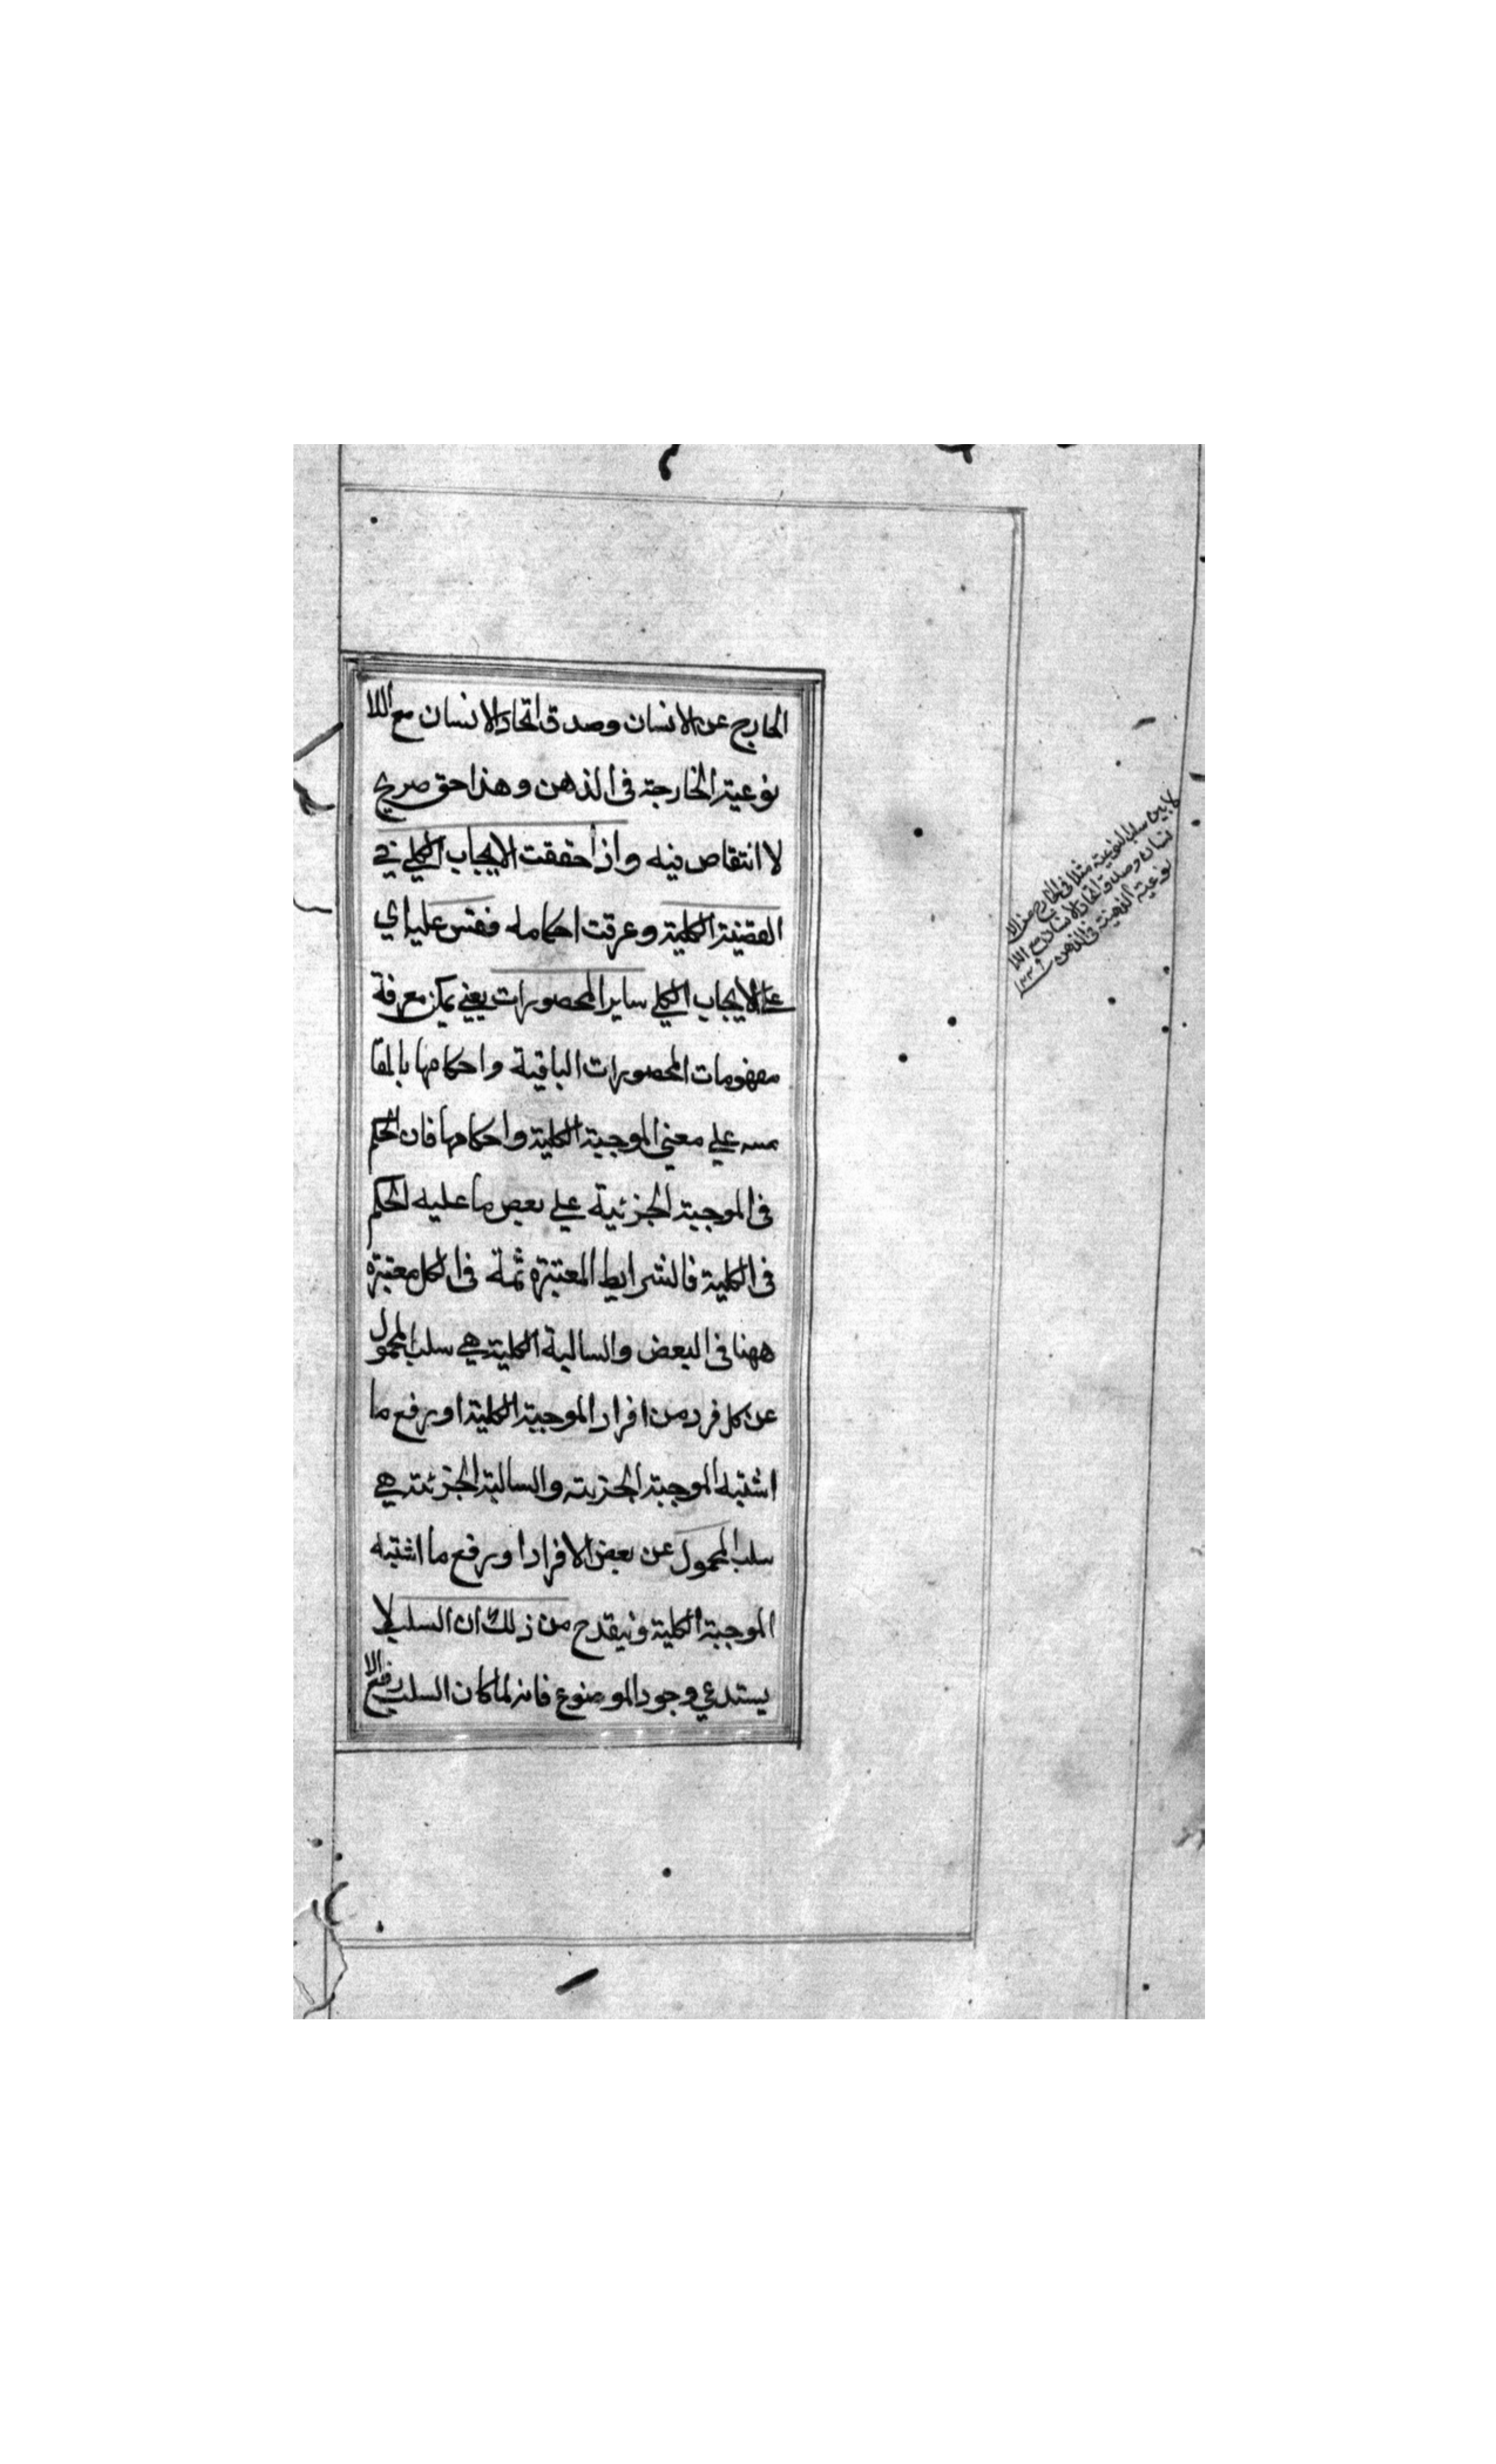 الخارج عن الانسان وصدق اتحاد الانسان مع اللا
نوعية الخارجة فى الذهن وهذا حق صريح
لا انتقاص فيه واذا حققت الايجاب الكلي في
القضية الكلية وعرفت احكامه فقس عليه اي
على الايجاب الكلي ساير المحصورات يعني يمكن معرفة
مفهومات المحصورات الباقية واحكامها بالمقا
يسه علي معني الموجبة الكلية واحكامها فان الحكم
فى الموجبة الجزئية علي بعض ما عليه الحكم
فى الكلية فالشرايط المعتبرة ثمة فى الكل معتبرة
ههنا فى البعض والسالبة الكلية هي سلب المحمول
عن كل فرد من افراد الموجبة الكلية او برفع ما
اشتبه الموجبة الجزيته والسالبة الجزئية هي
سلب المحمول عن بعض الافراد او برفع ما اشتبه
الموجبة الكلية من ذلك ان السلب لا
يستدعي وجود الموضوع فانه لما كان السلب رفع الا
لا بين سلب النوعية مثلا فى الخارج عن الا
نسان وصدق اتحاد الانسان مع اللا
نوعية الذهنية فى الذهن